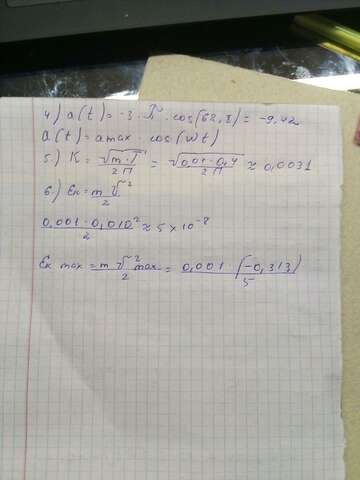 4) a(t) = -3 · π · cos(62,8) = -9,42
a(t) = amax · cos(wt)
5.) K = √m·T / 2π = √0,01·0,4 / 2π ≈ 0,0031
6) Eк = mv² / 2
0,001 · 0,010² / 2 ≈ 5 × 10⁻⁸
Eк max = mv² max / 2 = 0,001 · (-0,313) / 5